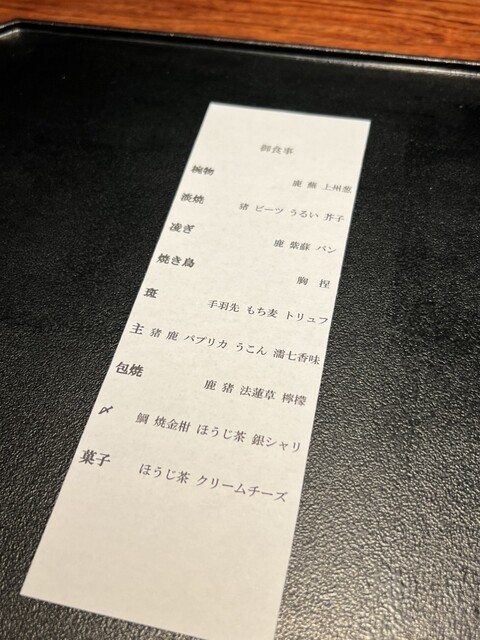 御食事
椀物 鹿 蕪 上州葱
淡焼 猪 ビーツ うるい 芥子
凌ぎ 鹿 紫蘇 パン
焼き鳥 胸 捏
斑 手羽先 もち麦 トリュフ
主 猪 鹿 パプリカ うこん 濡七香味
包焼 鹿 猪 法蓮草 檸檬
〆 鯛 焼金柑 ほうじ茶 銀シャリ
菓子 ほうじ茶 クリームチーズ